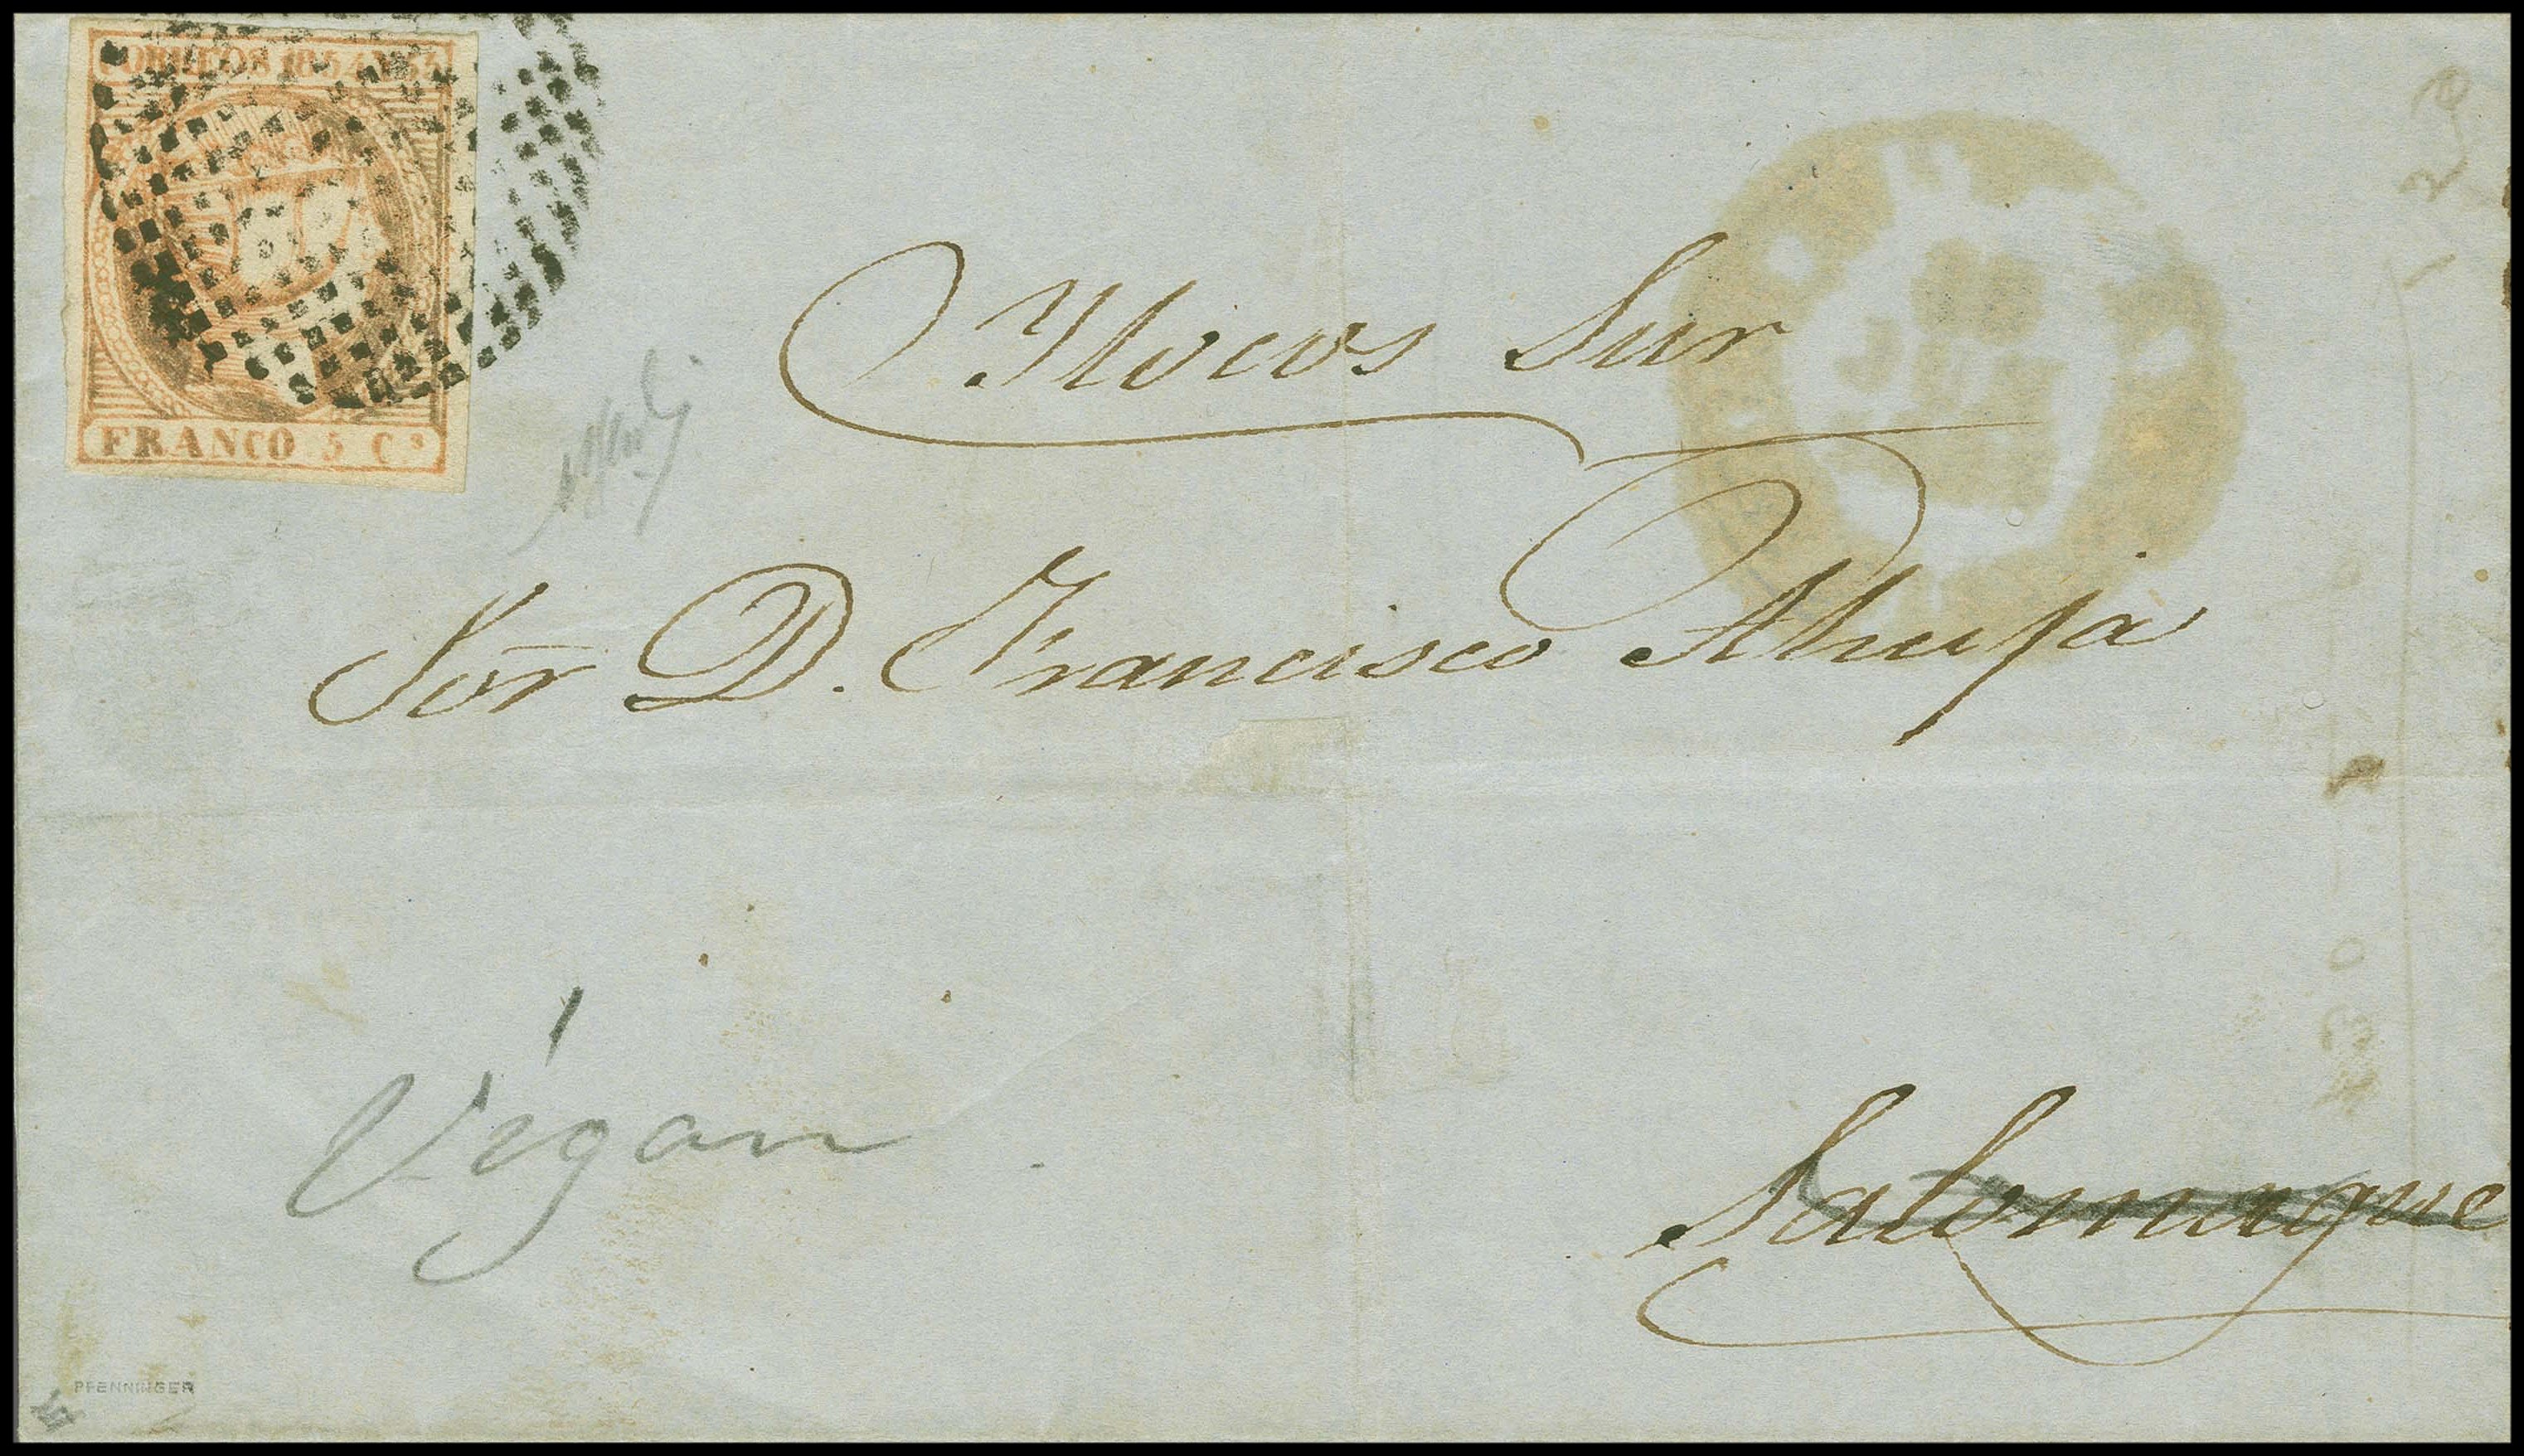 CORREOS 1854 Y 55
FRANCO 5 Cs
Ylocos Sur
Sor D. Francisco Ahuja
Vigan
Salomague
PFENNINGER